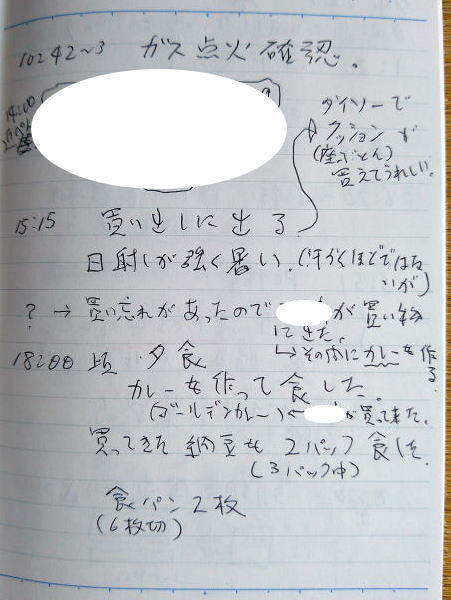 10:42〜3 ガス点火確認。
14:00
ダイソーで
クッションが
(座ぶとん)
買えてうれしい。
15:15 買い出しに出る
日射しが強く暑い。(汗かくほどではな
いが)
? → 買い忘れがあったので が買い
に
18:00頃 夕食 → その内にカレーを作
る
カレーを作って食した。
(ゴールデンカレー) ← が買って来た。
買ってきた納豆も2パック食した。
(3パック中)
食パン2枚
(6枚切)